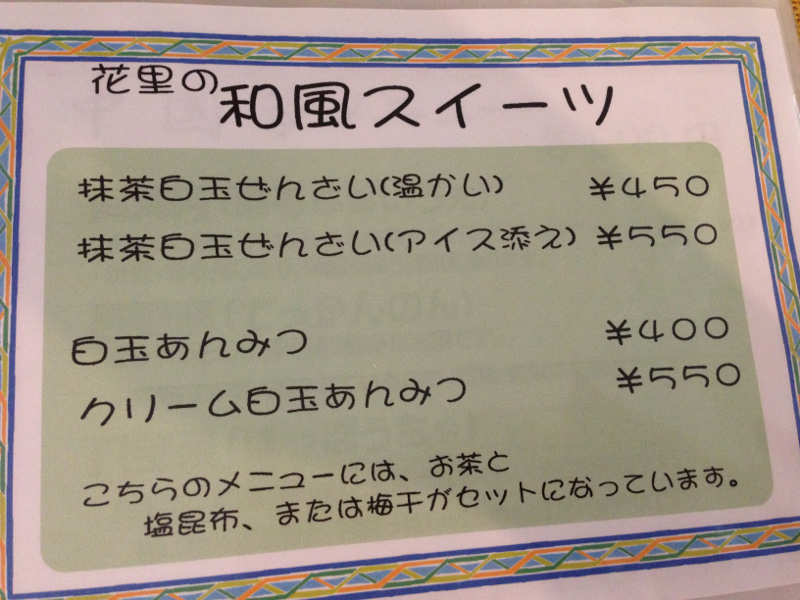 花里の和風スイーツ
抹茶白玉ぜんざい(温かい) ¥450
抹茶白玉ぜんざい(アイス添え) ¥550
白玉あんみつ ¥400
クリーム白玉あんみつ ¥550
こちらのメニューには、お茶と
塩昆布、または梅干がセットになっています。